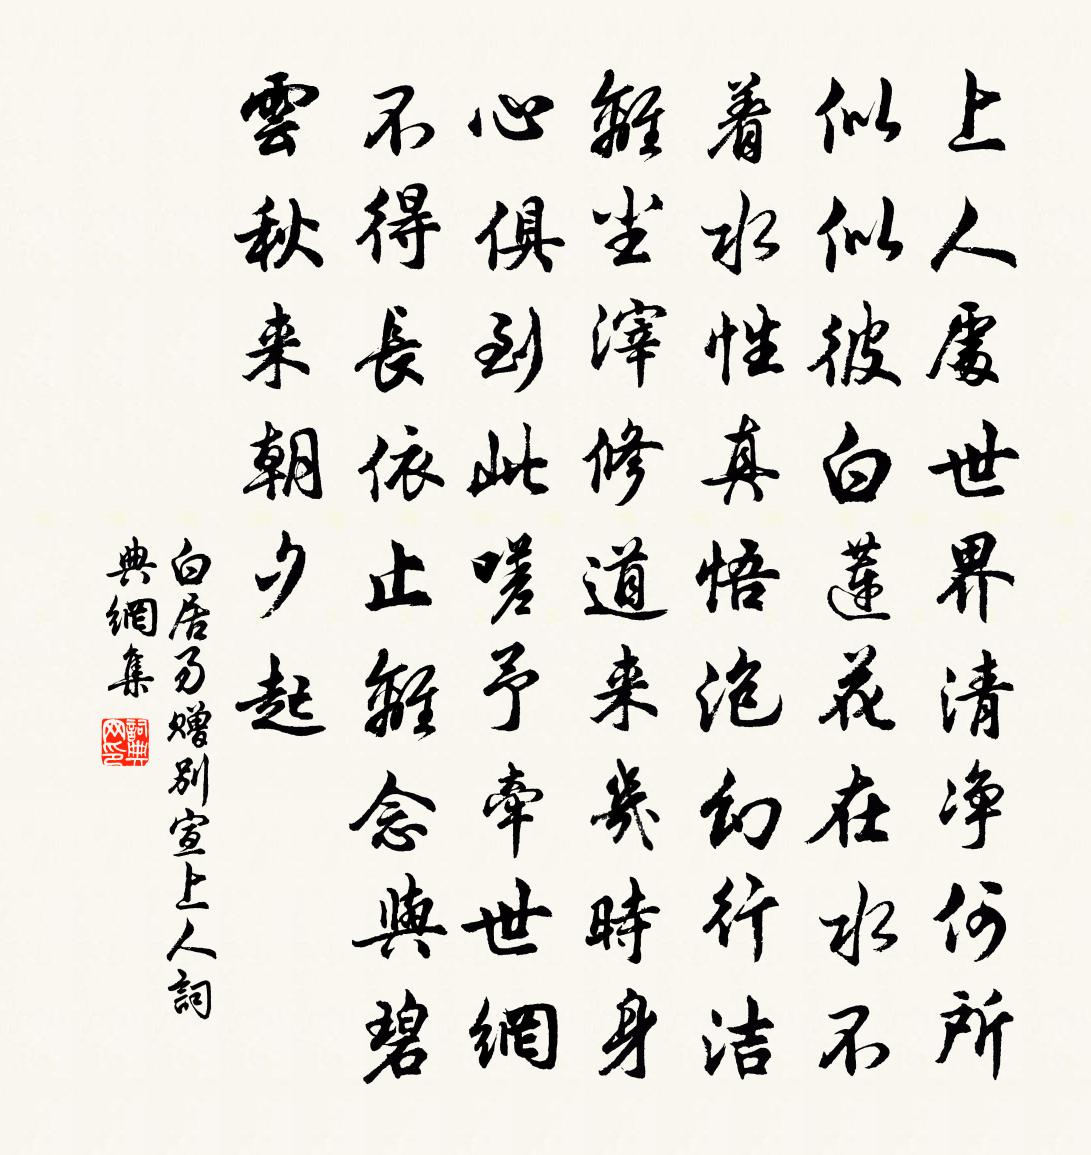 上人處世界清净何所
似似彼白蓮花在水不
着水性真悟泡幻行洁
離尘滓修道来幾時身
心俱到此嗟予牵世網
不得長依止離念與碧
雲秋来朝夕起
白居易赠别宣上人詞
典網集
詞典网印